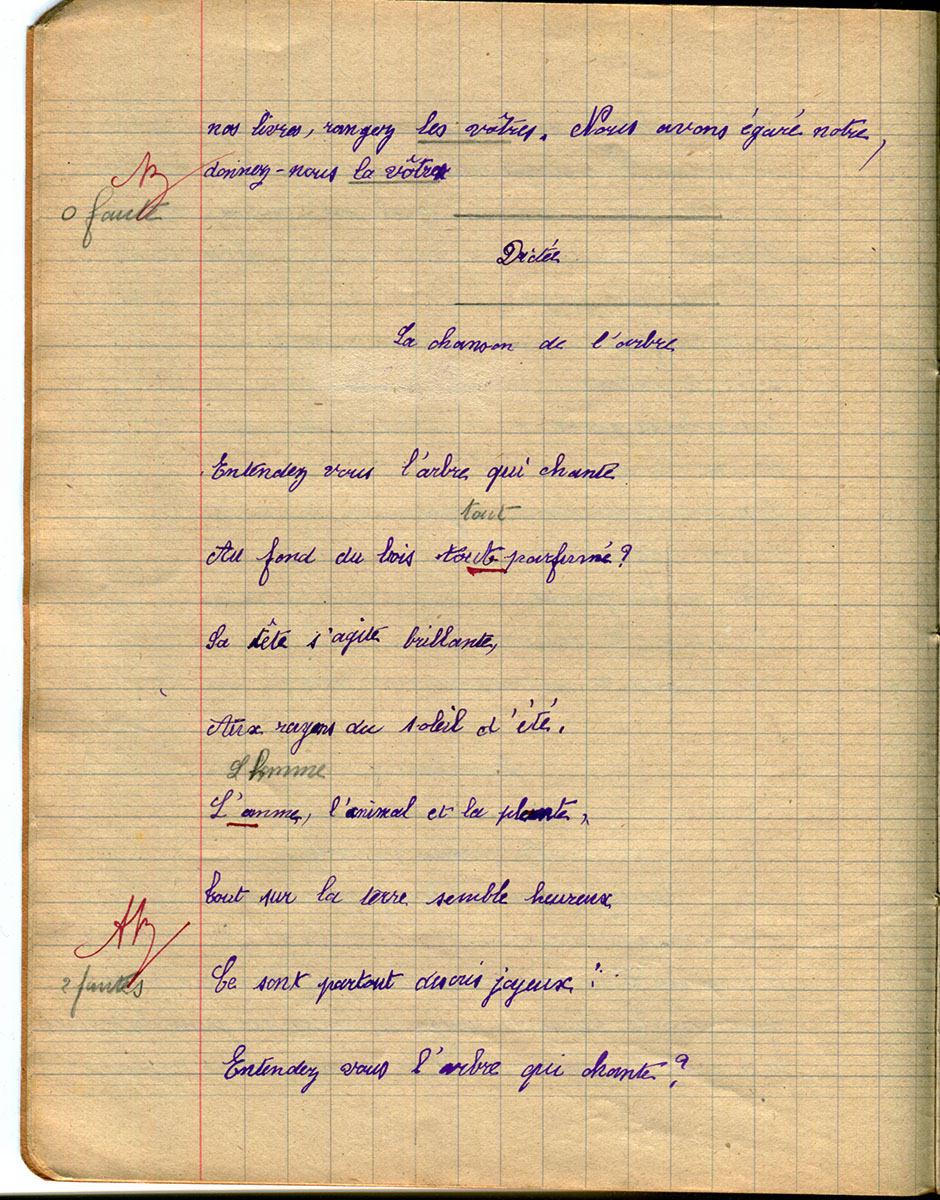 nos livres, rangez les vôtres. Nous avons égaré notre,
donnez-nous la vôtre
B
0 faute
Dictée
La chanson de l'arbre
Entendez vous l'arbre qui chante
tout
Au fond du bois toute parfumé?
Sa tête s'agite brillante,
Aux rayons du soleil d'été.
L'homme
L'anme, l'animal et la plante,
tout sur la terre semble heureux
AB
2 fautes
Ce sont partout des cris joyeux!
Entendez vous l'arbre qui chante?